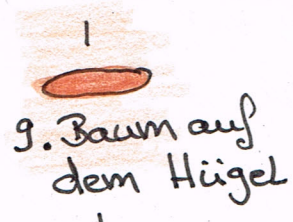 9. Baum auf
dem Hügel